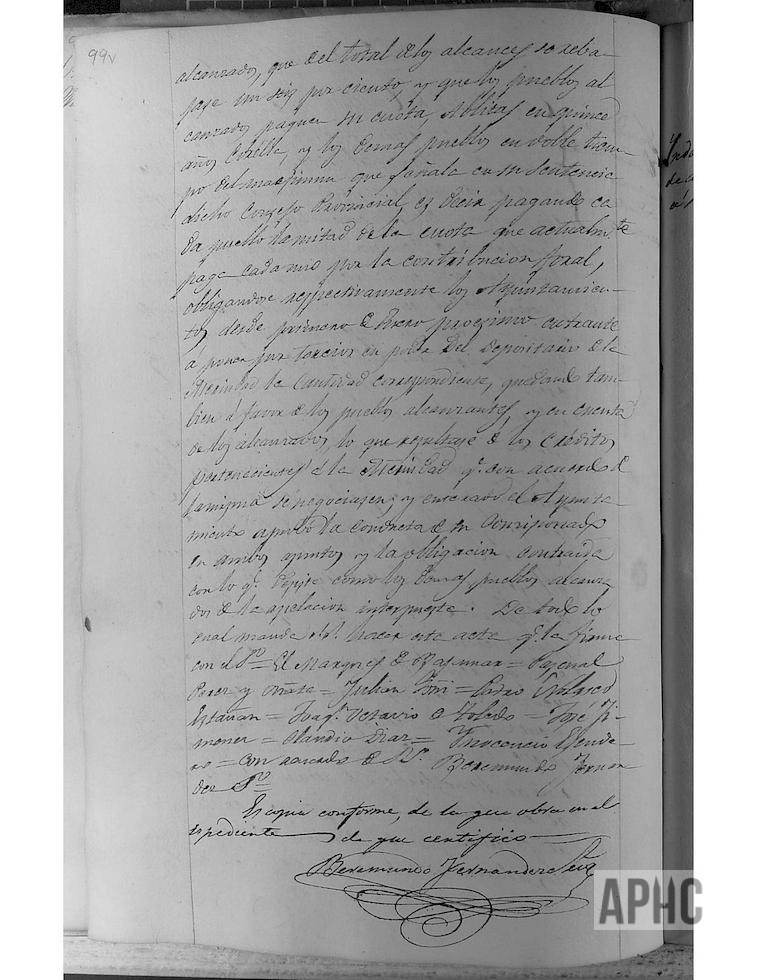 99v
alcanzado, que del total de los alcances se reba-
jase un seis por ciento, y que los pueblos al
canzados paguen su cuota, solitas en quince
años Corella, y los demas pueblos en doble tiem-
po del maximun que señala en su sentencia
dicho Consejo Provincial, es decir pagando ca
da pueblo la mitad de la cuota que actualmte
paga cada uno por la contribucion foral,
obligandose respectivamente los Ayuntamien-
tos desde primero de Enero procsimo entrante
a poner por tercios en poder del Depositario de la
Merindad la Cantidad correspondiente, quedando tam-
bien á favor de los pueblos alcanzantes, y en cuenta
de los alcanzados, lo que resultase de los Creditos
pertenecientes á la Merindad qe. con acuerdo de
la misma se negociasen; y enterado el Ayunta-
miento aprobó la conducta de su Comisionado
en ambos puntos y la obligacion contraida
con lo qe. desiste como los demas pueblos alcanza
dos de la apelacion interpuesta. De todo lo
cual mandó hacer este acta qe. la firma
con el Sº = El Marques de Bajamar = Pascual
Perez y Oñate = Julian Goñi = Pedro
Estañan = Joaqn. Octavio de Toledo = José Ji-
menez = Claudio Diaz = Ynocencio Escude-
ro = Con acuerdo de S.S. Beremundo Fernan
dez Sº =
Es copia conforme, de la que obra en el
espediente de que certifico
Beremundo Fernandez Srio
APHC